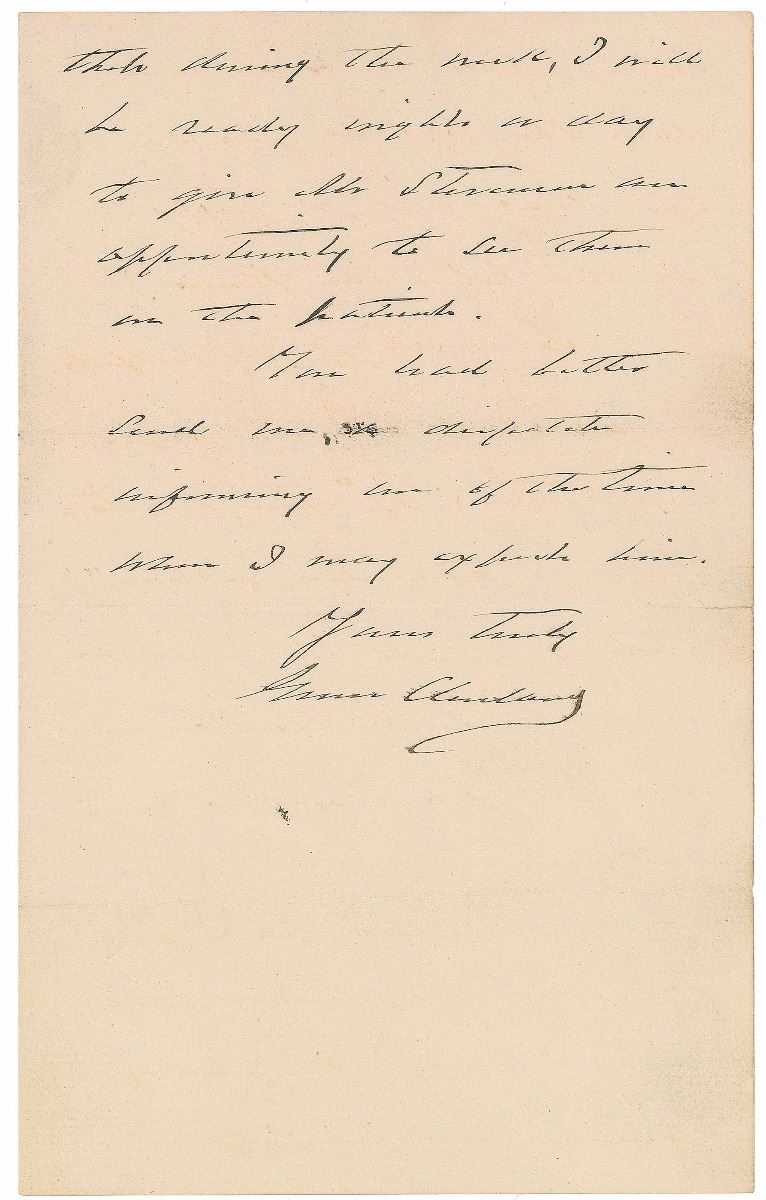 that during the week, I will
be ready night or day
to give Mr Stevenson an
opportunity to see them
on the
You had better
send me a dispatch
informing me of the time
when I may expect him.
Yours truly
Grover Cleveland